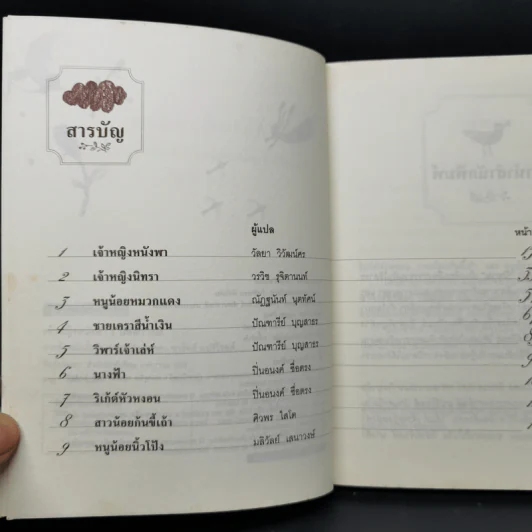 สารบัญ
ผู้แปล หน้า
1 เจ้าหญิงหนังพา วัลยา วิวัฒน์ศร
2 เจ้าหญิงนิทรา วรวิช
3 หนูน้อยหมวกแดง ณัฏฐนันท์
4 ชายเคราสีน้ำเงิน ปัณฑารีย์ บุญสาธร
5 วิฬาร์เจ้าเล่ห์ ปัณฑารีย์ บุญสาธร
6 นางฟ้า ปิ่นอนงค์ ซื่อตรง
7 ริเก้ต์หัวหงอน ปิ่นอนงค์ ซื่อตรง
8 สาวน้อยก้นขี้เถ้า ศิวพร
9 หนูน้อยนิ้วโป้ง มลิวัลย์ เสนาวงษ์